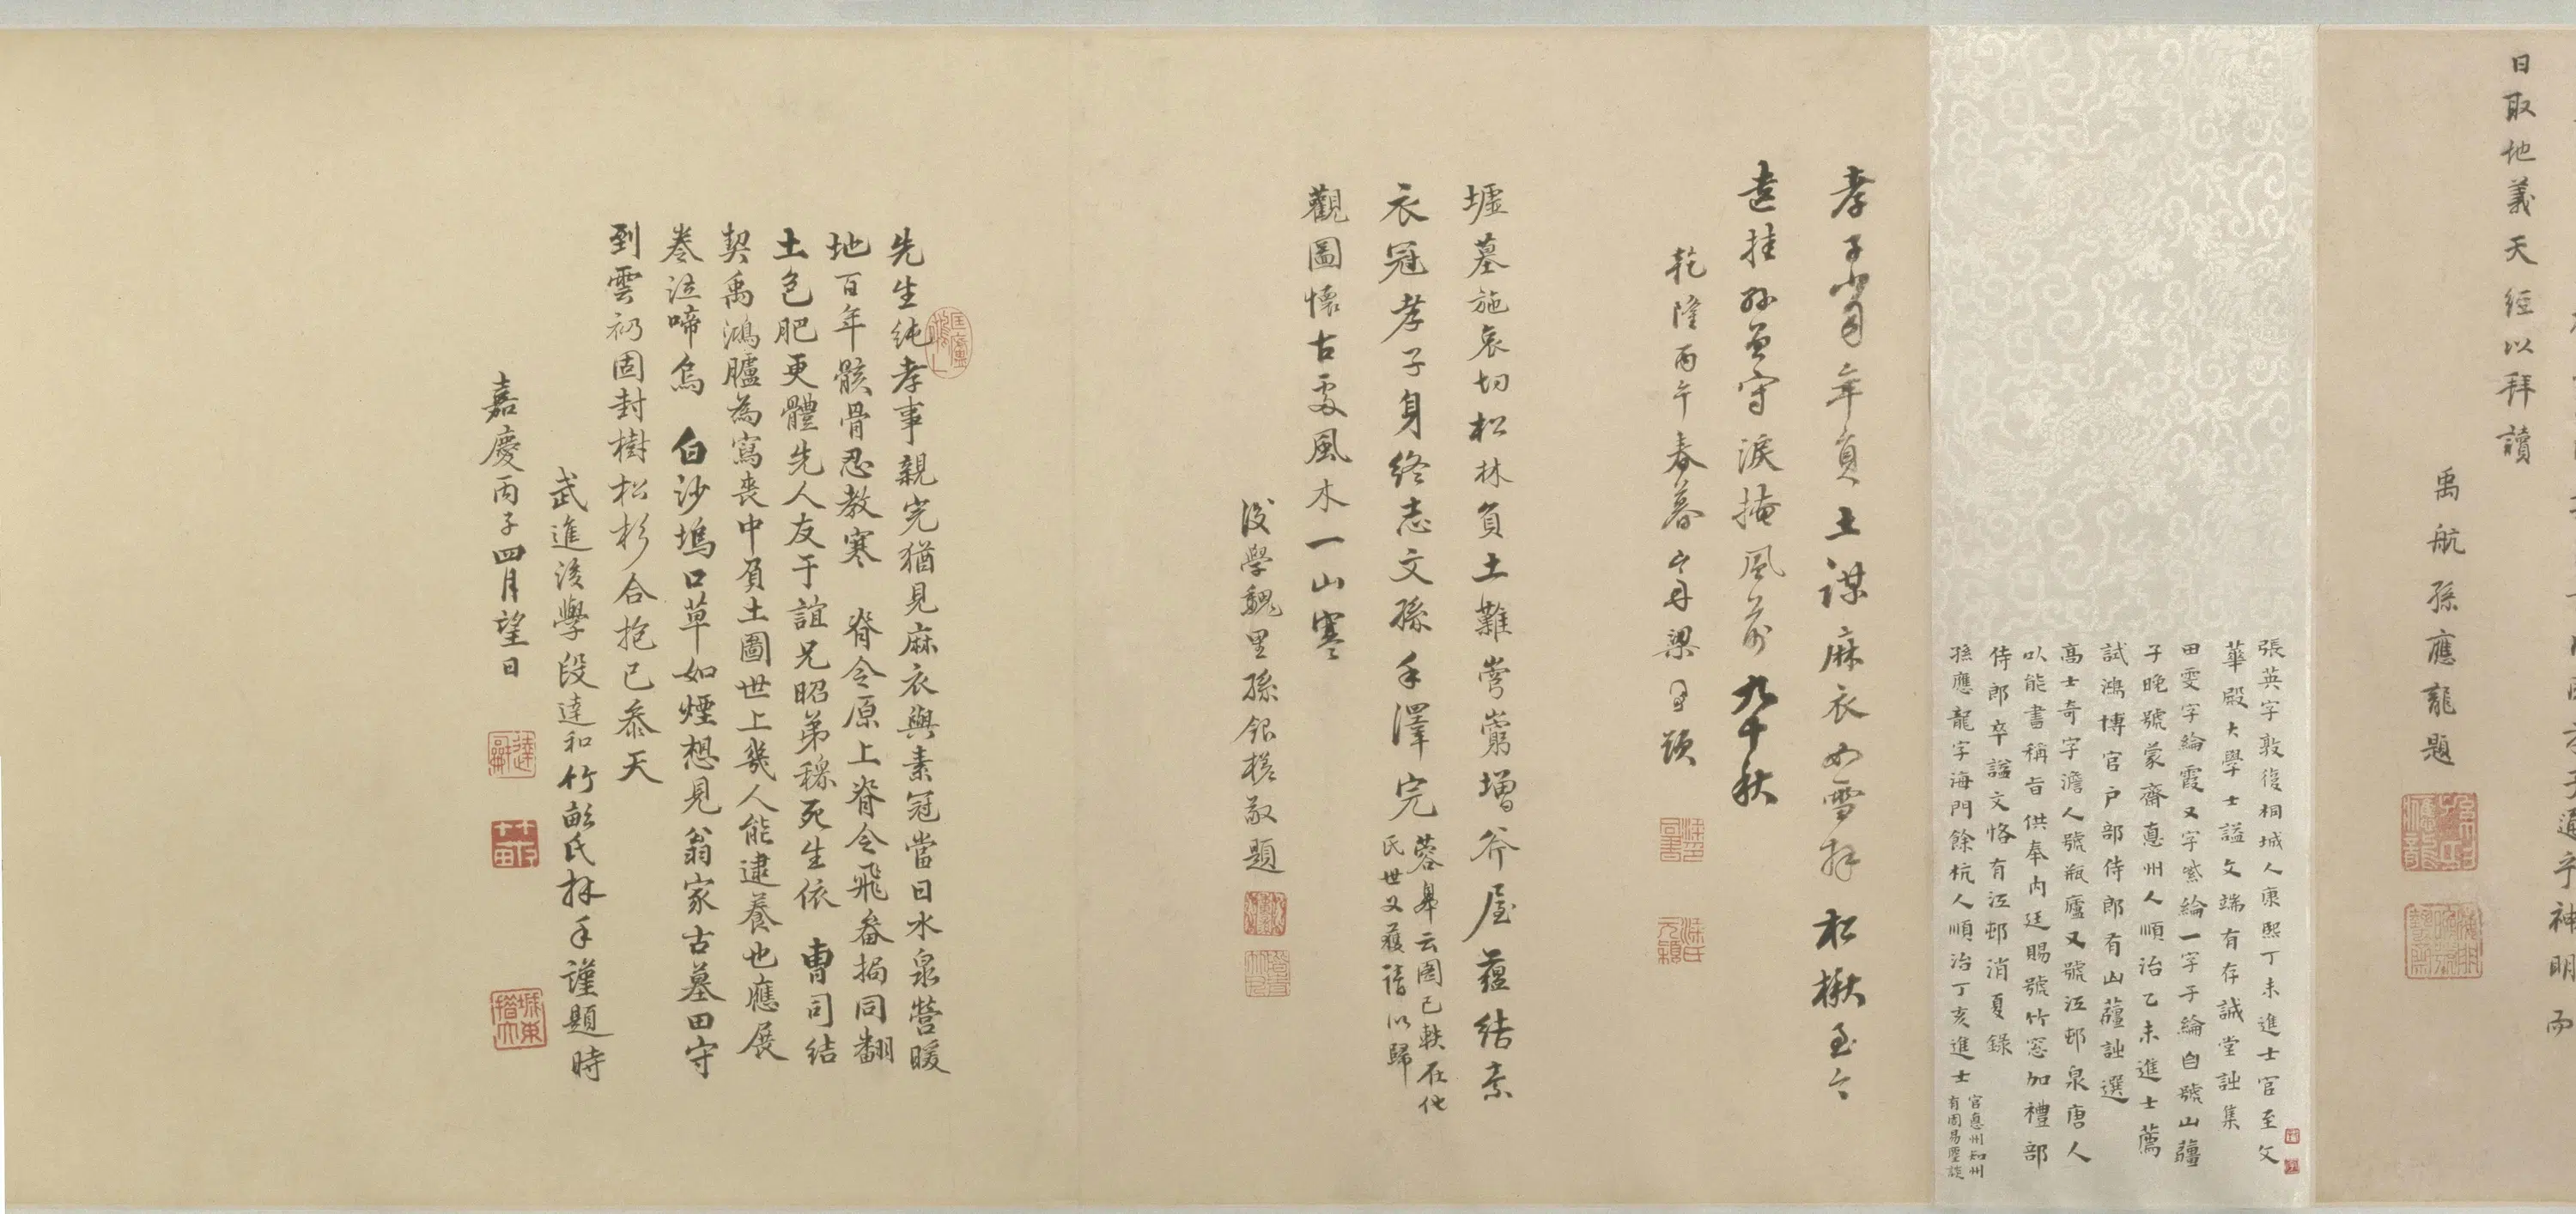 日取地義天經以拜讀
禹航孫應龍題
張英字敦復桐城人康熙丁未進士官至文
華殿大學士謚文端有存誠堂詩集
田雯字綸霞又字紫綸一字子綸自號山薑
子晚號蒙齋惪州人順治乙未進士薦
試鴻博官户部侍郎有山薑詩選
高士奇字澹人號瓶廬又號江邨泉唐人
以能書稱旨供奉内廷賜號竹窓加禮部
侍郎卒謚文恪有江邨消夏錄
孫應龍字海門餘杭人順治丁亥進士
官惪州知州
有周易塵談
孝子當年負土謀麻衣如雪拜松楸至今
遺挂孫曾守淚掩風前九十秋
乾隆丙午春暮山舟梁同書題
墟墓施哀切松林負土難嵩嵩增斧屋蘊結素
衣冠孝子身終志文孫手澤完
蓉舉云圖已軼在他
氏世又獲讀以歸
觀圖懷古處風木一山寒
後學魏里孫銀槎敬題
先生純孝事親完猶見麻衣與素冠當日水泉營暖
地百年骸骨忍教寒 脊令原上脊令飛畚挶同翻
土色肥更體先人友于誼兄昭弟穆死生依 曹司結
契禹鴻臚為寫喪中負土圖世上幾人能逮養也應展
卷泣啼烏 白沙塢口草如煙想見翁家古墓田守
到雲礽固封樹松杉合抱已參天
武進後學段達和竹畝氏拜手謹題時
嘉慶丙子四月望日